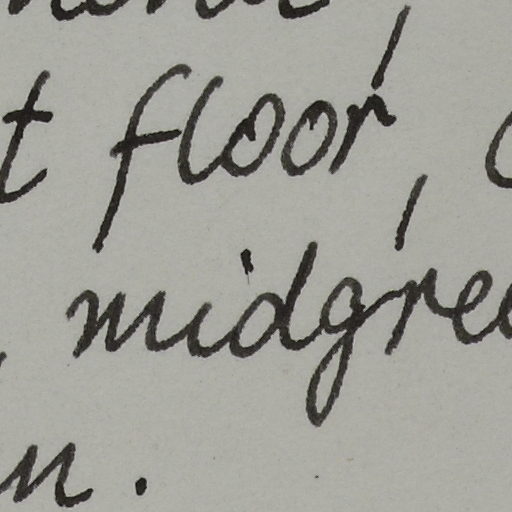 t floor,
, midgree
n.